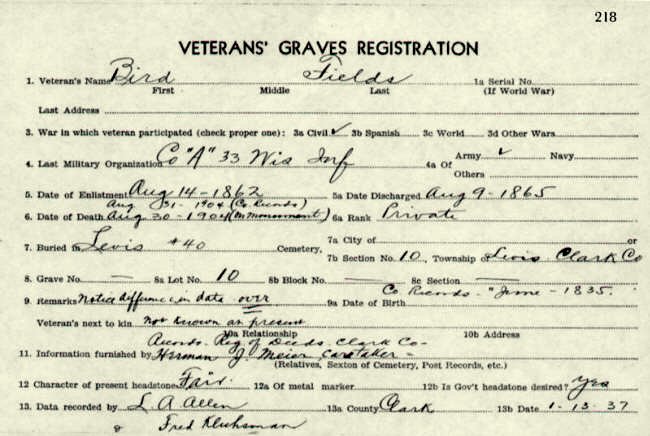 218
VETERANS' GRAVES REGISTRATION
1. Veteran's Name Bird Fields 1a Serial No.
First Middle Last (If World War)
Last Address
3. War in which veteran participated (check proper one): 3a Civil ✓ 3b Spanish 3c World 3d Other Wars
4. Last Military Organization Co "A" 33 Wis Inf 4a Of Army ✓ Navy
Others
5. Date of Enlistment Aug 14-1862 5a Date Discharged Aug 9-1865
Aug 31-1904 (Co Records)
6. Date of Death Aug 30-1904 (On Monument) 6a Rank Private
7. Buried in Levis #40 Cemetery, 7a City of or
7b Section No. 10, Township of Levis Clark Co
8. Grave No. — 8a Lot No. 10 8b Block No. — 8c Section —
Co Records. "June-1835.
9. Remarks Notice difference in date over 9a Date of Birth
Veteran's next to kin not known at present
10a Relationship 10b Address
Records. Reg of Deeds. Clark Co-
11. Information furnished by Herman J. Meier, Caretaker-
(Relatives, Sexton of Cemetery, Post Records, etc.)
12 Character of present headstone Fair. 12a Of metal marker 12b Is Gov't headstone desired? Yes
13. Data recorded by L. A. Allen 13a County Clark 13b Date 1-13-37
& Fred